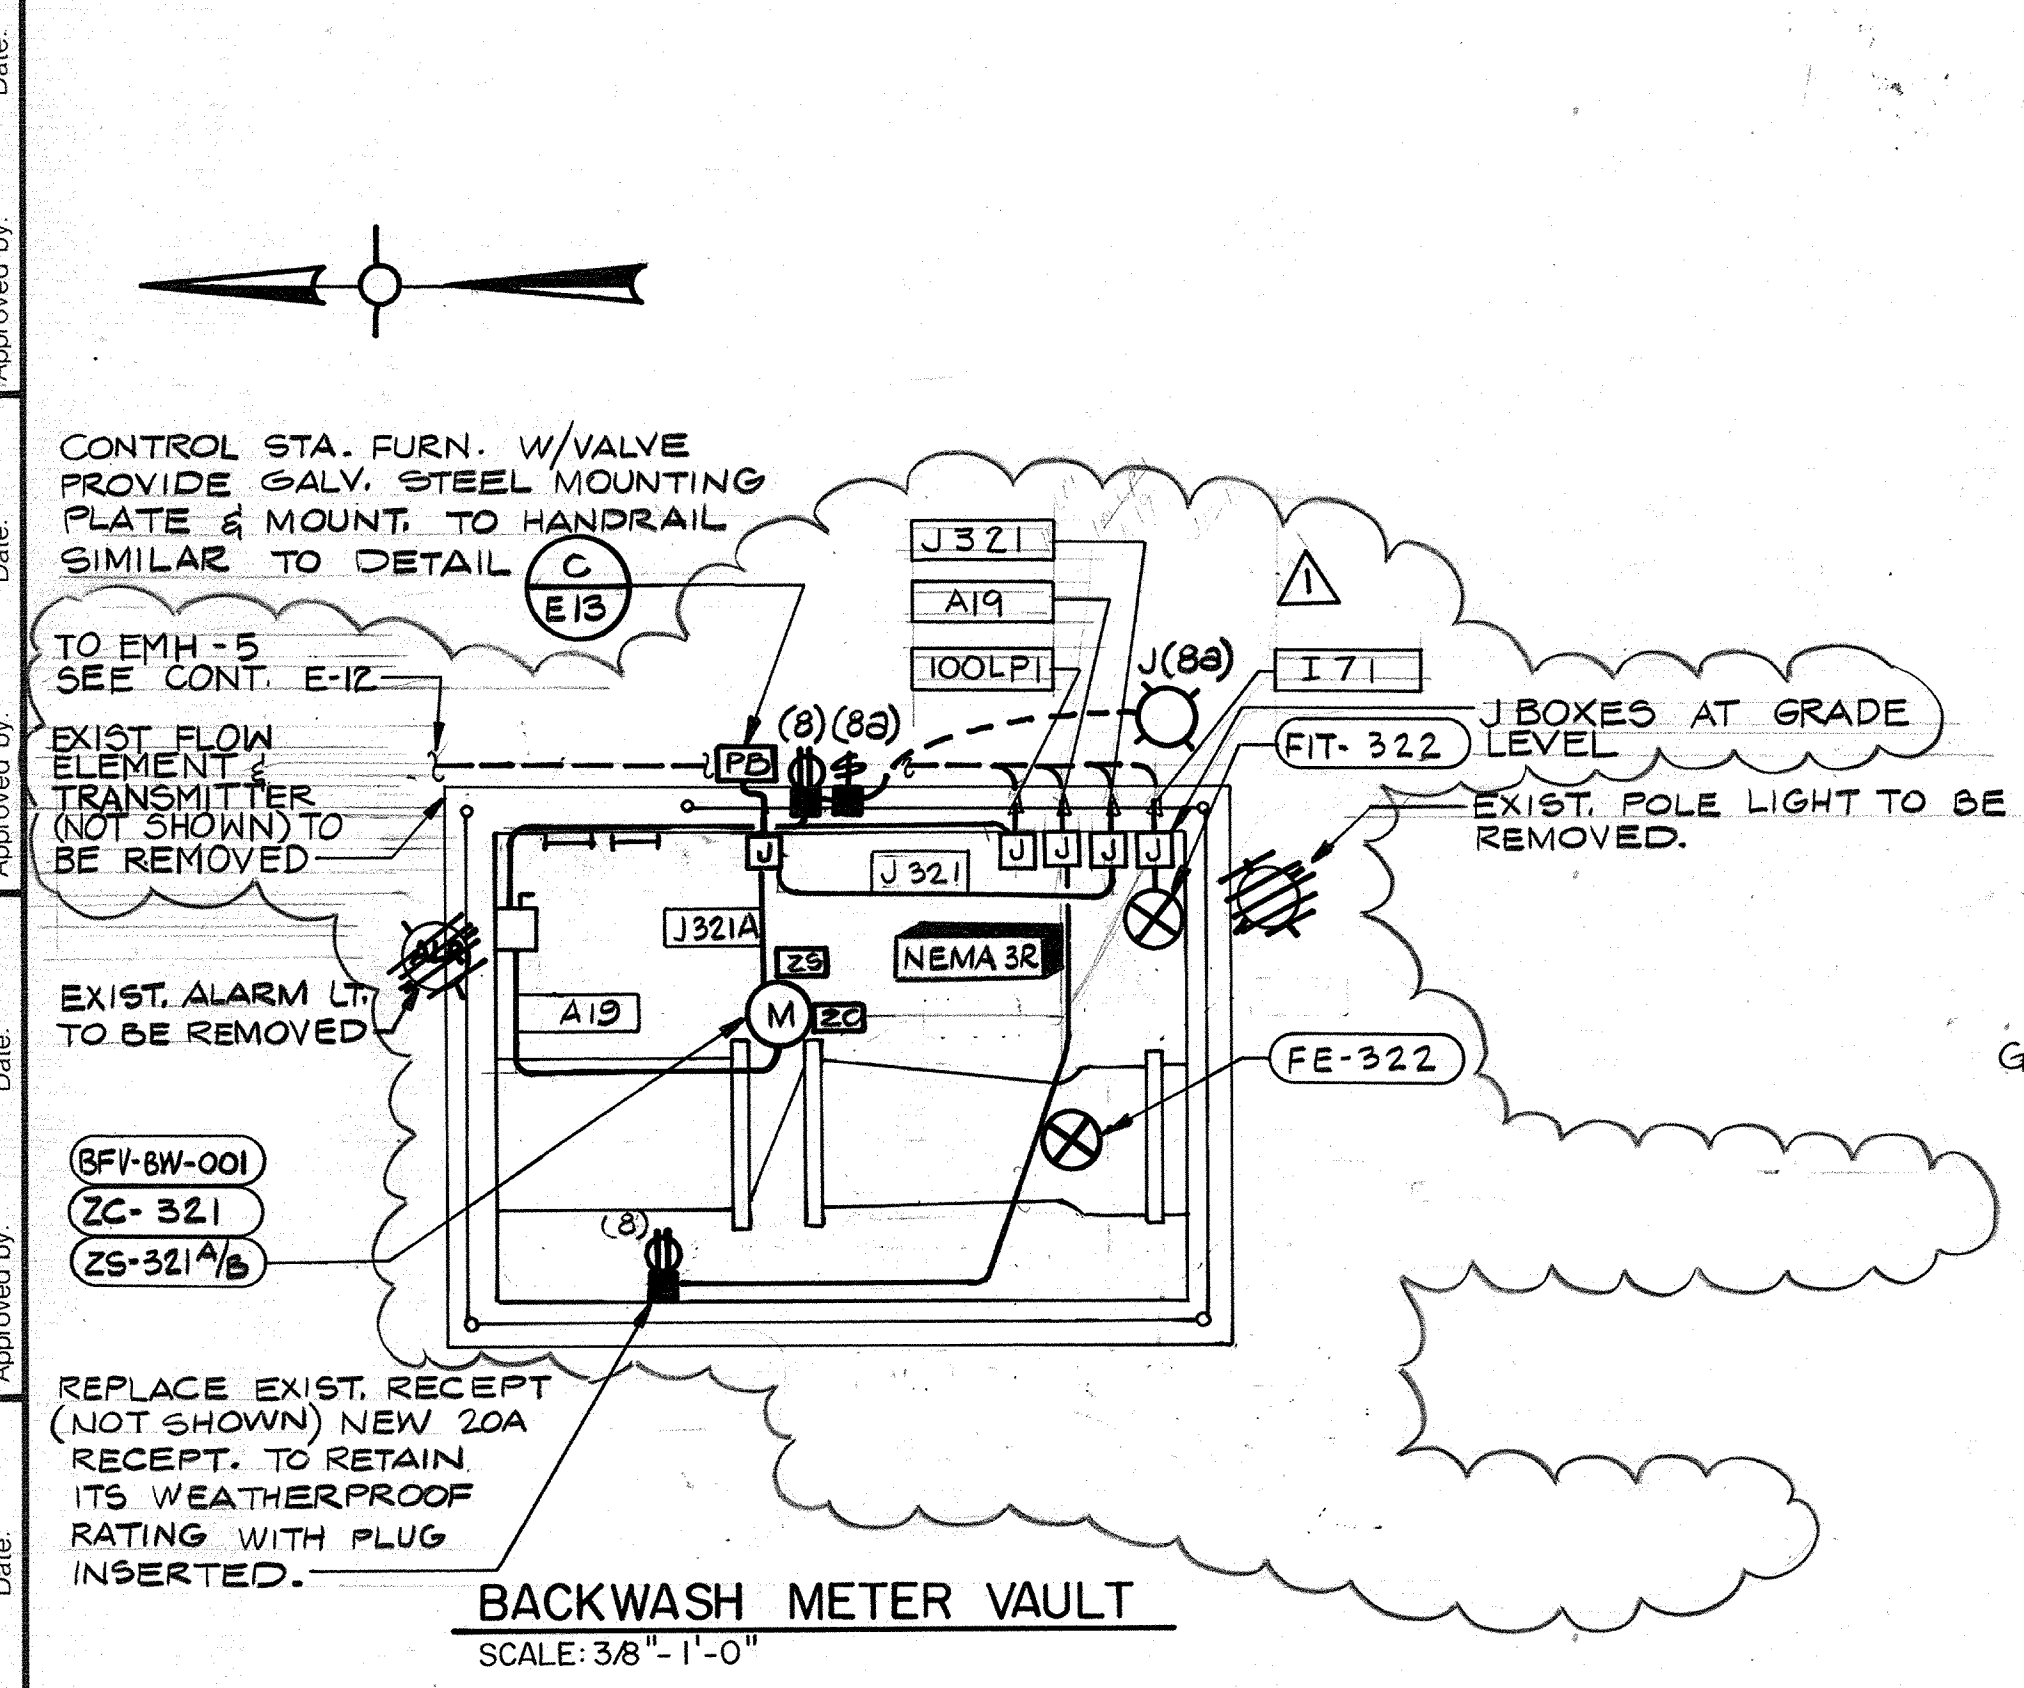 Date:
Approved by:
Date:
Approved by:
Date:
Approved by:
Date:
CONTROL STA. FURN. W/VALVE
PROVIDE GALV. STEEL MOUNTING
PLATE & MOUNT. TO HANDRAIL
SIMILAR TO DETAIL
C
E13
TO EMH-5
SEE CONT. E-12
EXIST FLOW
ELEMENT &
TRANSMITTER
(NOT SHOWN) TO
BE REMOVED
EXIST. ALARM LT.
TO BE REMOVED
BFV-BW-001
ZC-321
ZS-321 A/B
REPLACE EXIST. RECEPT
(NOT SHOWN) NEW 20A
RECEPT. TO RETAIN
ITS WEATHERPROOF
RATING WITH PLUG
INSERTED.
J321
A19
100LP1
1
J(8a)
I71
J BOXES AT GRADE
LEVEL
FIT-322
EXIST. POLE LIGHT TO BE
REMOVED.
(8) (8a)
PB
J
J
J
J
J
J 321
J321A
ZS
NEMA 3R
A19
M
ZC
FE-322
(8)
G
BACKWASH METER VAULT
SCALE: 3/8"-1'-0"